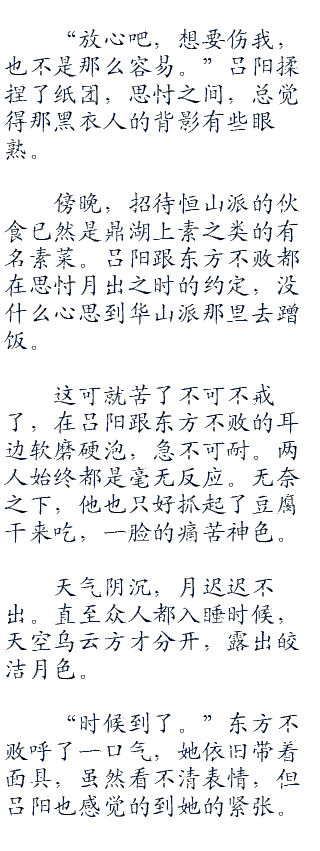 “放心吧，想要伤我，
也不是那么容易。”吕阳揉
捏了纸团，思忖之间，总觉
得那黑衣人的背影有些眼
熟。
傍晚，招待恒山派的伙
食已然是鼎湖上素之类的有
名素菜。吕阳跟东方不败都
在思忖月出之时的约定，没
什么心思到华山派那里去蹭
饭。
这可就苦了不可不戒
了，在吕阳跟东方不败的耳
边软磨硬泡，急不可耐。两
人始终都是毫无反应。无奈
之下，他也只好抓起了豆腐
干来吃，一脸的痛苦神色。
天气阴沉，月迟迟不
出。直至众人都入睡时候，
天空乌云方才分开，露出皎
洁月色。
“时候到了。”东方不
败呼了一口气，她依旧带着
面具，虽然看不清表情，但
吕阳也感觉的到她的紧张。